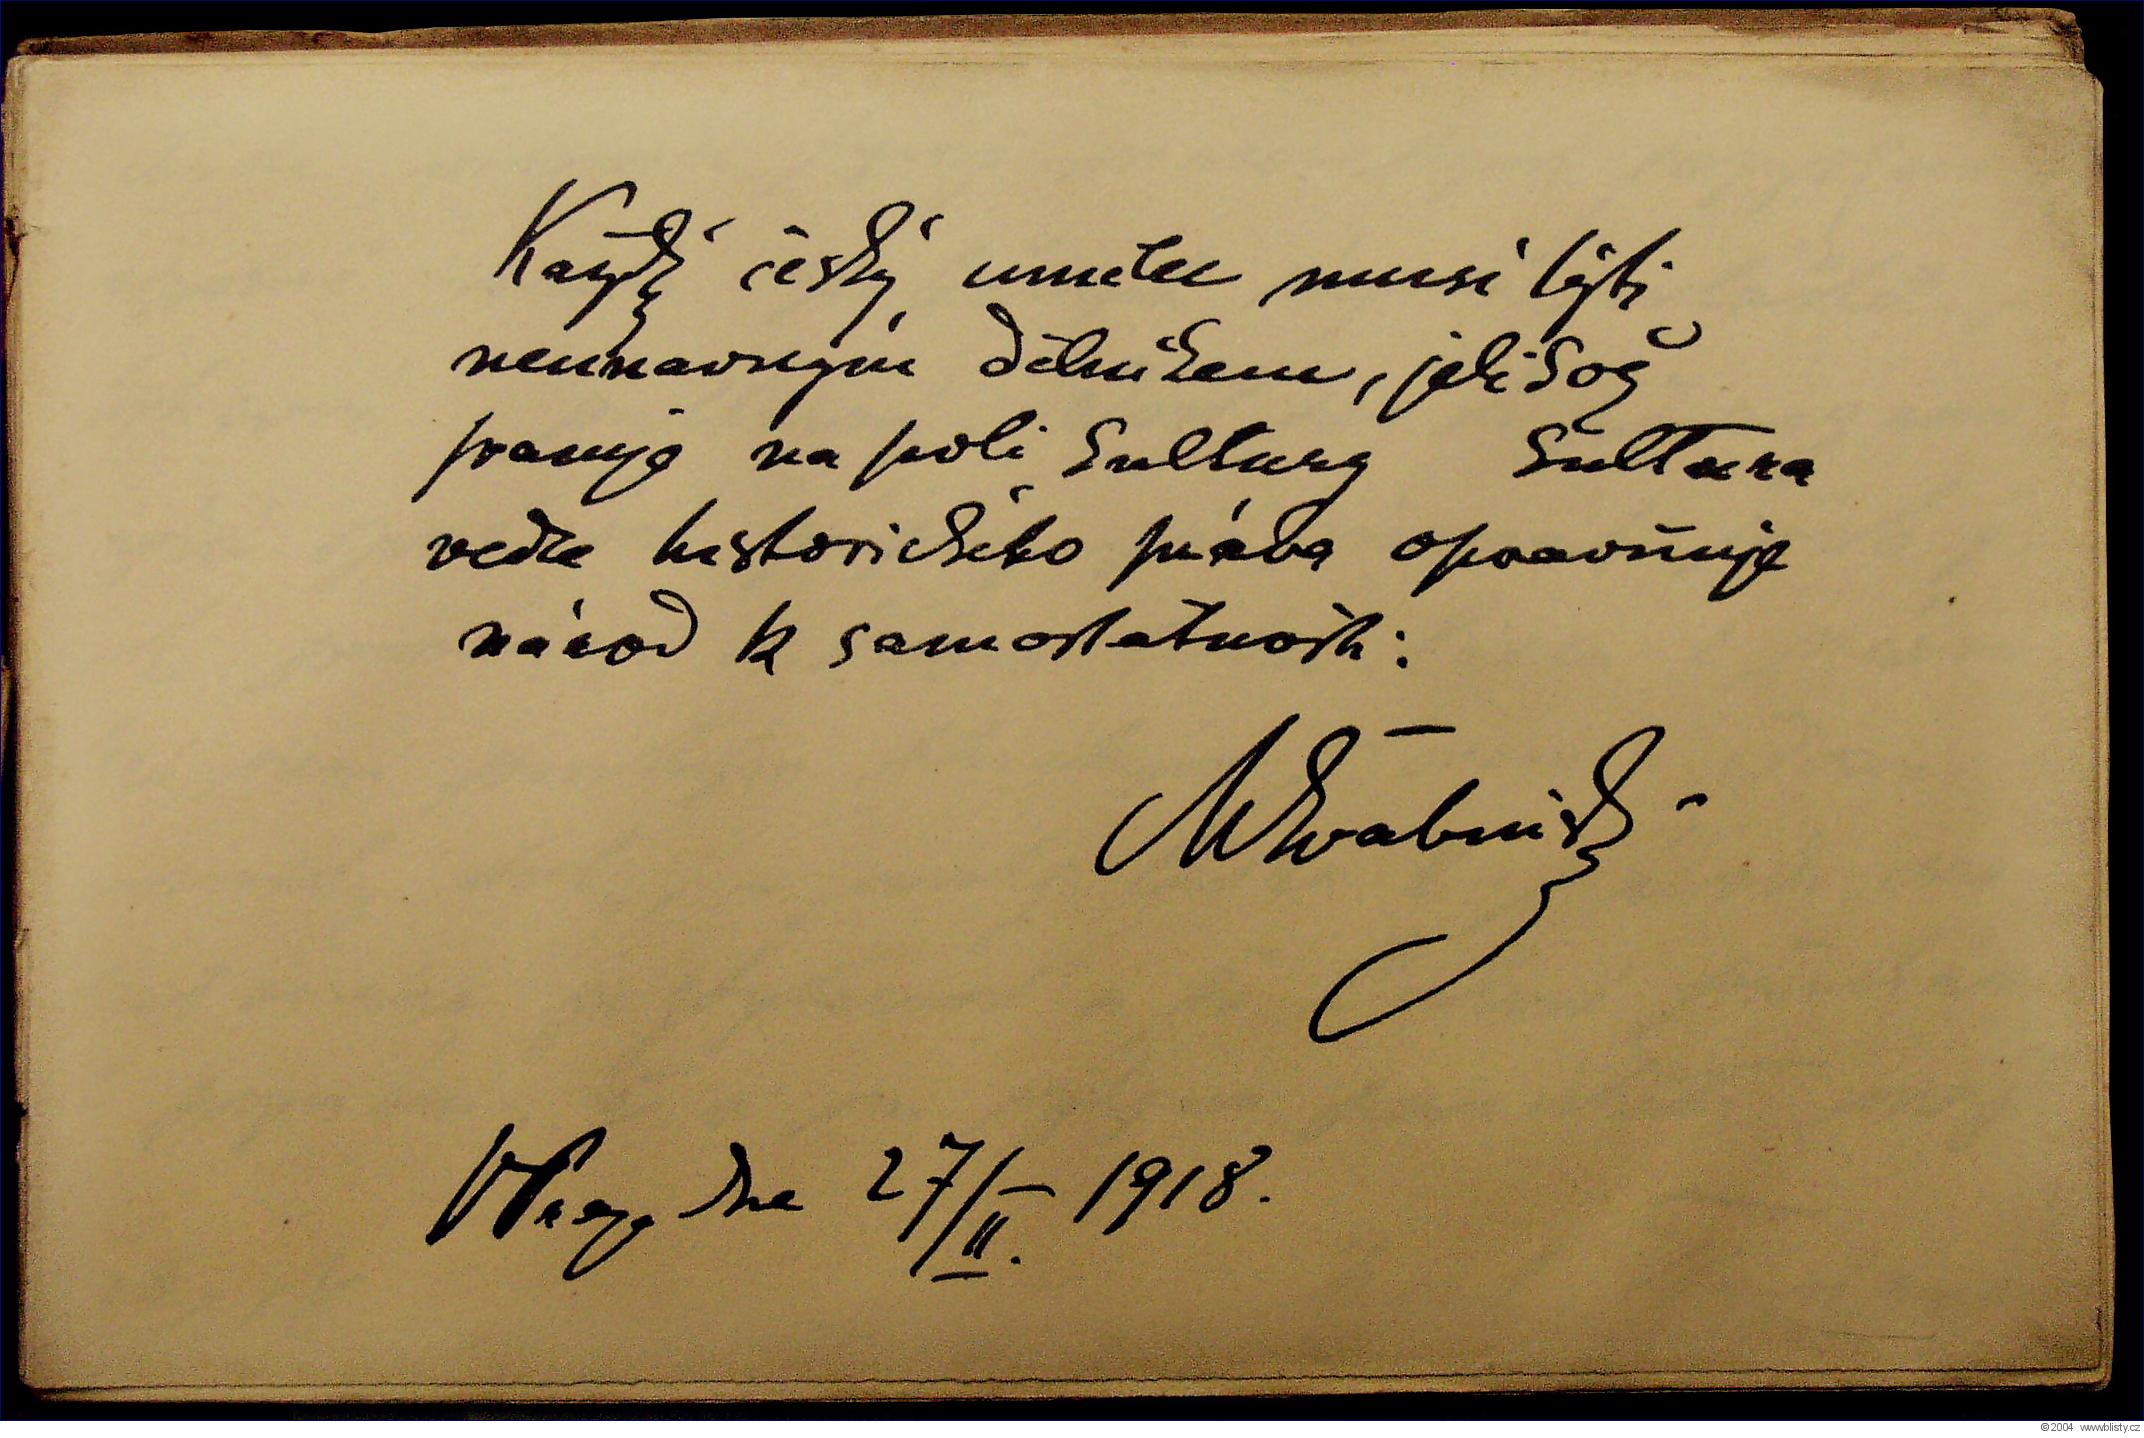 Každý český umělec musí býti
neúnavným dělníkem, jelikož
pracuje na poli kultury kultura
vedle historického práva opravňuje
národ k samostatnosti:
MŠvabinský
V Praze dne 27/II. 1918.
© 2004 www.blisty.cz